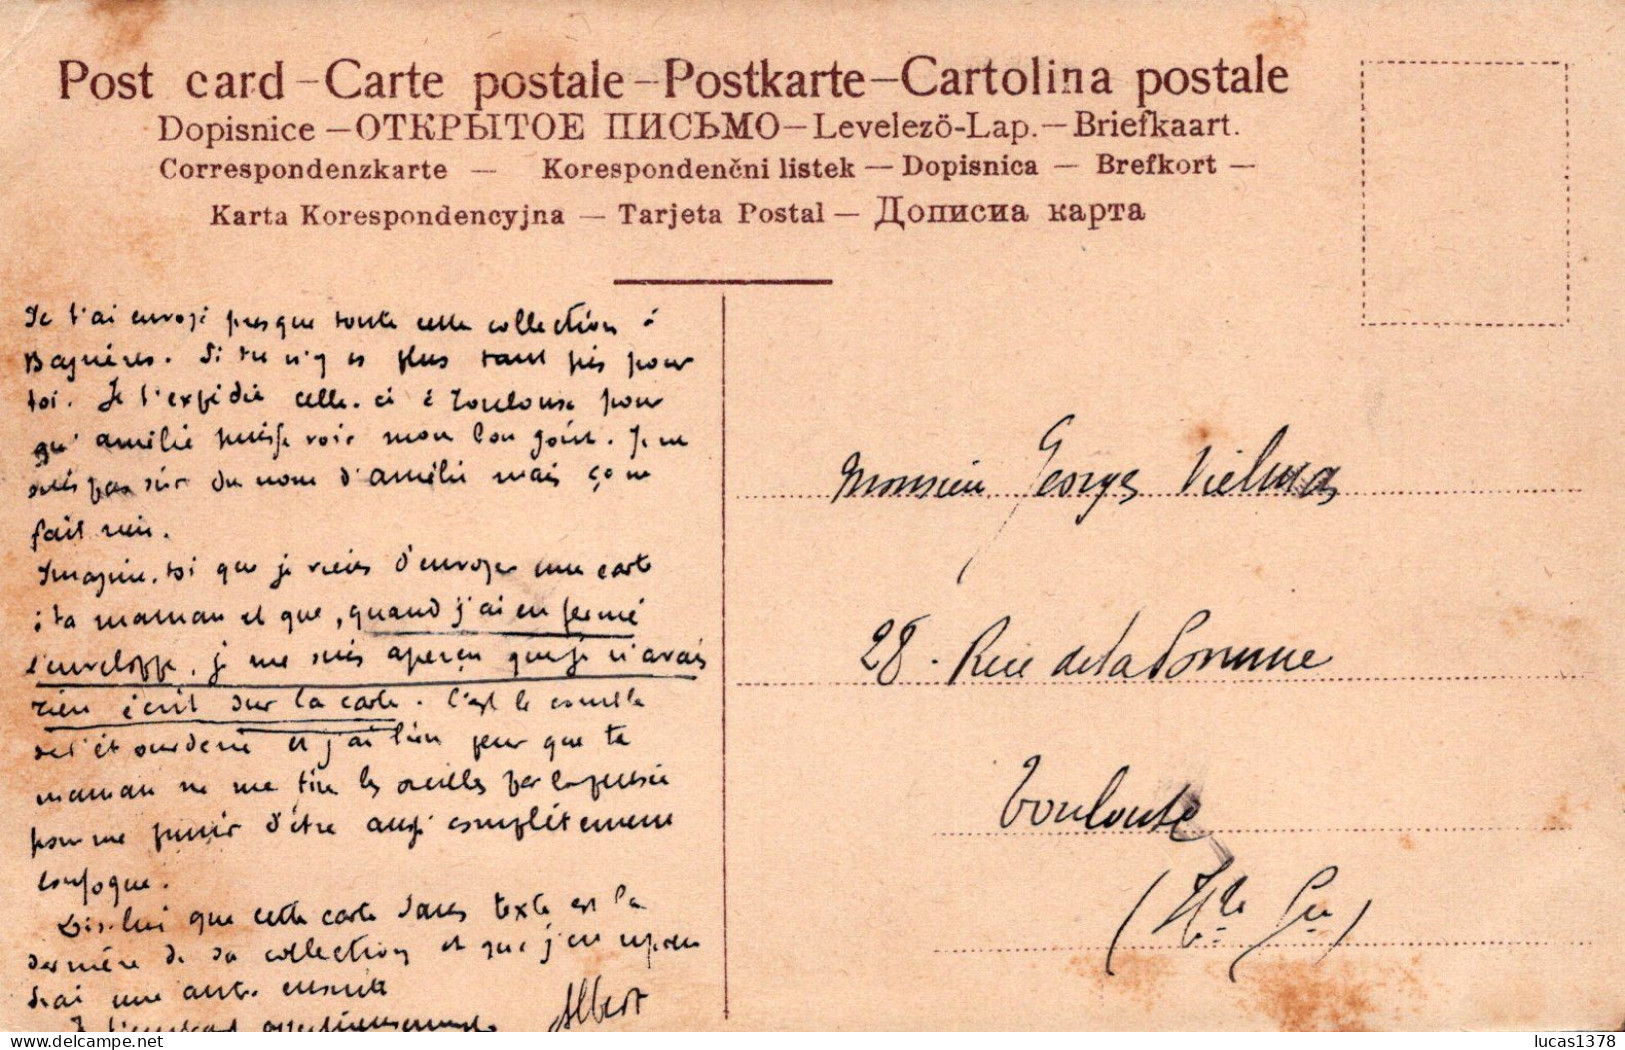 Post card – Carte postale – Postkarte – Cartolina postale
Dopisnice – ОТКРЫТОЕ ПИСЬМО – Levelezö-Lap. – Briefkaart.
Correspondenzkarte — Korespondenčni listek — Dopisnica — Brefkort —
Karta Korespondencyjna — Tarjeta Postal — Дописна карта
Je t'ai envoyé presque toute cette collection à
Bagnères. Si tu n'y es plus tant pis pour
toi. Je t'expédie celle-ci à Toulouse pour
qu'amélie puisse voir mon bon goût. Je ne
suis pas sûr du nom d'amélie mais ça ne
fait rien.
Imagine-toi que je viens d'envoyer une carte
à ta maman et que, quand j'ai eu fermé
l'enveloppe, je me suis aperçu que je n'avais
rien écrit sur la carte. C'est le comble
de l'étourderie et j'ai bien peur que ta
maman ne me tire les oreilles par la pensée
pour me punir d'être aussi complètement
loufoque.
Dis-lui que cette carte sans texte est la
dernière de sa collection et que j'en
une autre ensuite
Je t'embrasse affectueusement
Albert
Monsieur Georges Vielmas
28. Rue de la Pomme
Toulouse
(Hte Gne)
lucas1378
delcampe.net